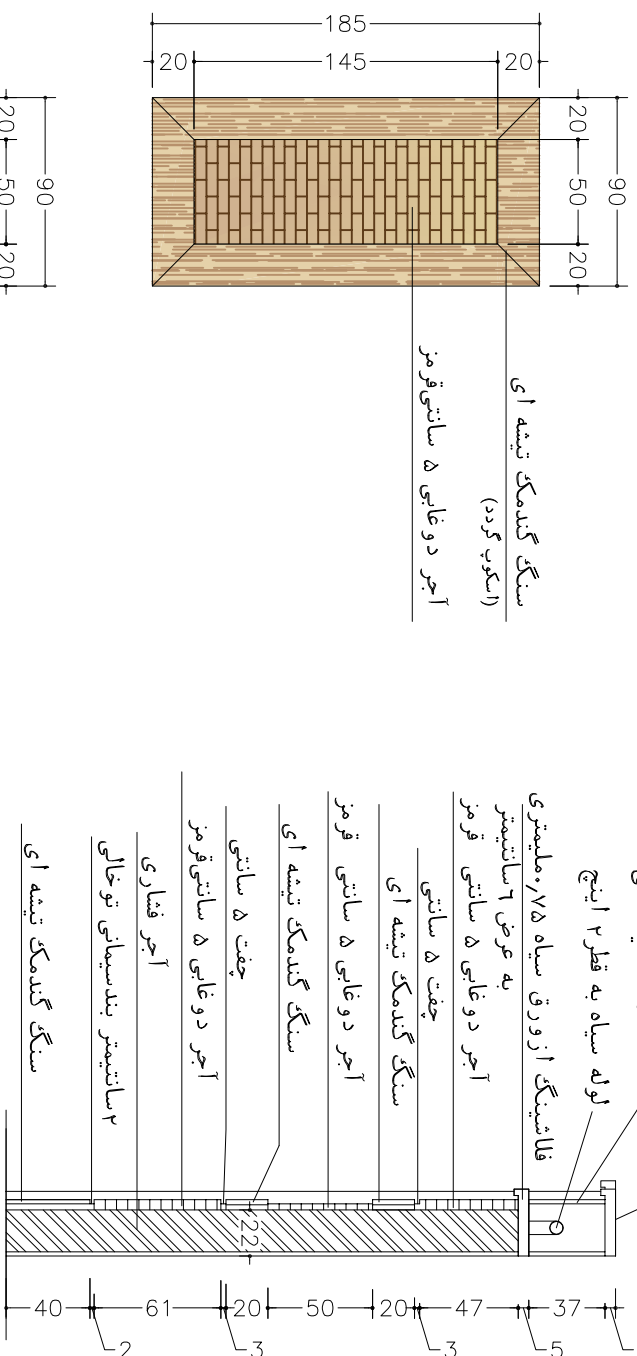 185
20 145 20
20
50
20
90
20
50
20
90
سنگ گندمک تیشه ای
(اسکوپ گردد)
آجر دوغابی ۵ سانتی قرمز
لوله سیاه به قطر ۲ اینچ
فلاشینگ از ورق سیاه ۰٫۷۵ میلیمتری
به عرض ۶ سانتیمتر
آجر دوغابی ۵ سانتی قرمز
جفت ۵ سانتی
سنگ گندمک تیشه ای
آجر دوغابی ۵ سانتی قرمز
سنگ گندمک تیشه ای
جفت ۵ سانتی
آجر دوغابی ۵ سانتی قرمز
آجر فشاری
۲ سانتیمتر بندسیمانی توخالی
سنگ گندمک تیشه ای
22
40
2
61
3
20
50
20
3
47
5
37